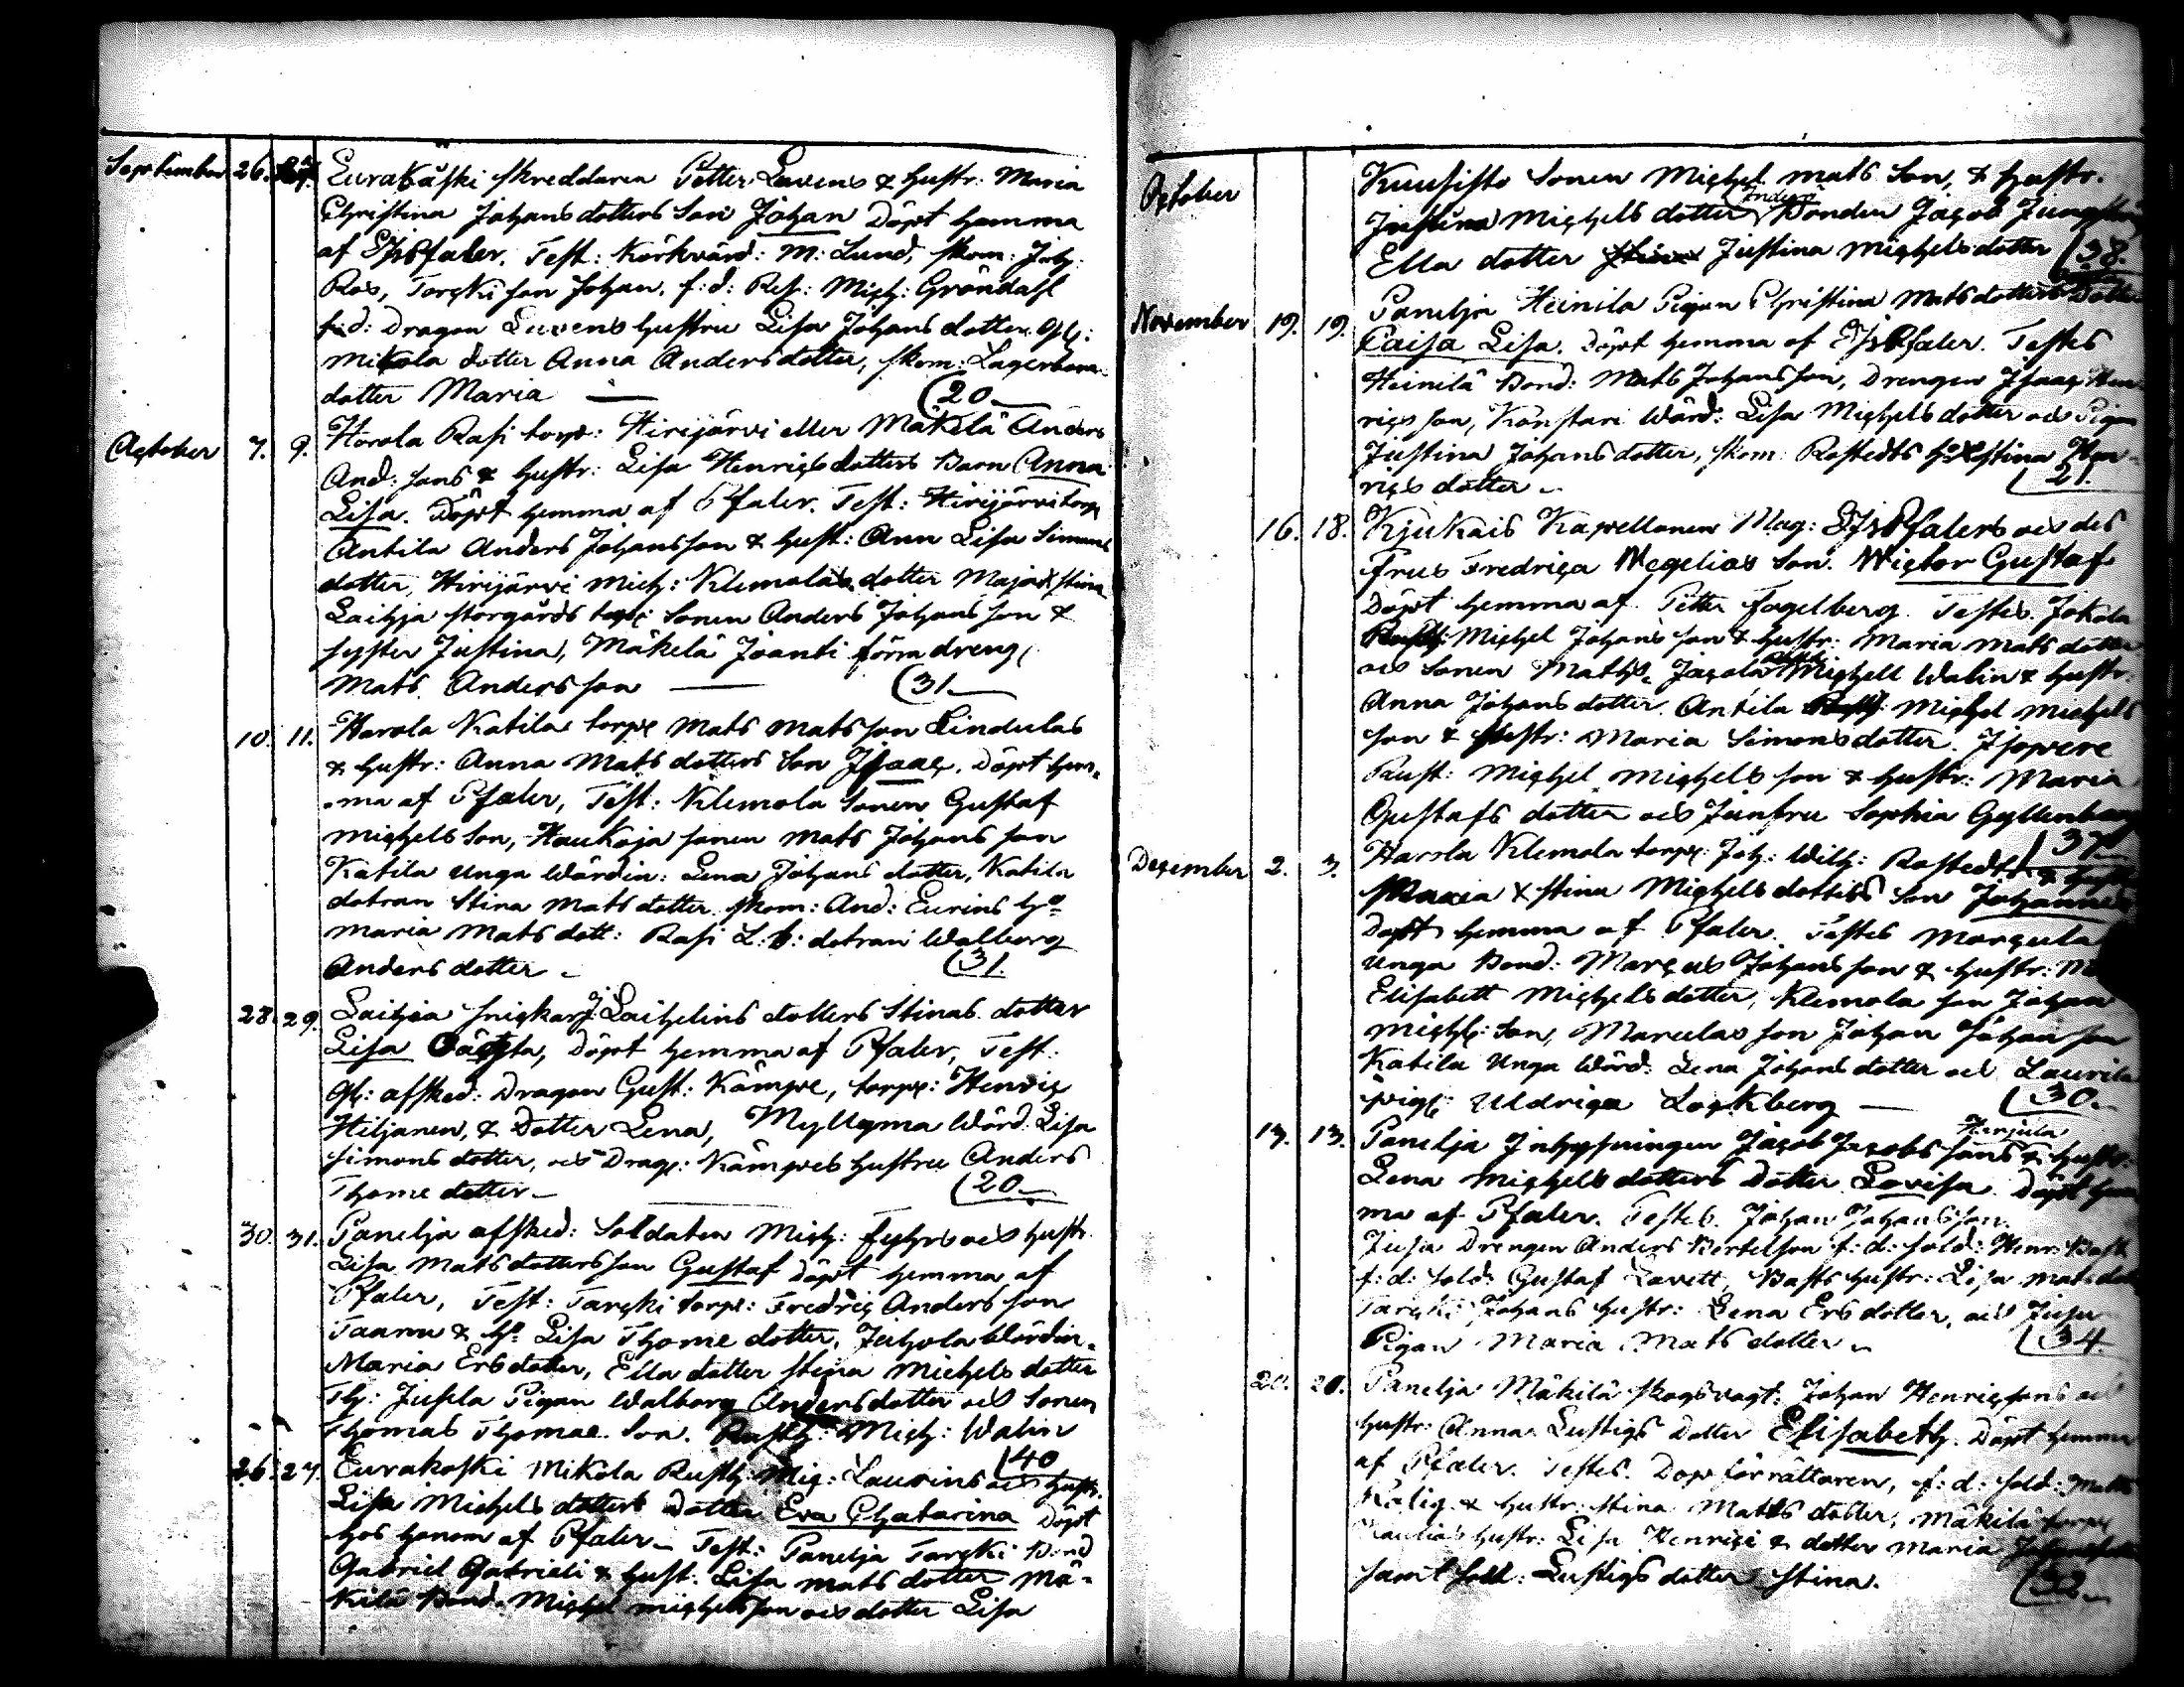 September 26. 27. Eurakåski skreddaren Petter Lavens & hustr: Maria
Christina Johans dotters Son Johan Döpt hemma
af Pfaler. Test: Körkvärd: M: Lund, skom: Joh:
Ros, Torcki son Johan. f:d: Res: Mich: Gröndahl
f:d: Dragon Luvens hustru Lisa Johans dotter
Mikola dotter Anna Anders dotter, skom: Lagerboms
dotter Maria — (20
October 7. 9. Harola Rasi torp: Hirijärvi eller Mäkelä Anders
And: sons & hustr: Lisa Henrics dotters Barn Anna
Lisa. Döpt hemma af Pfaler. Test: Hirijärvi torp
Antila Anders Johansson & hust: Ann Lisa Simons
dotter, Hirijärvi Mich: Klemolas dotter Maja Xstina
Laihja storgårds torp: Sonen Anders Johans son &
syster Justina, Mäkelä Joanti förra dreng
Mats Andersson — (31
10. 11. Harola Katila torp: Mats Mats son Lindulas
& hustr: Anna Mats dotters Son Isaac. Döpt hem-
ma af Pfaler, Test: Klemola Sonen Gustaf
Michels son, Haukoja sonen Mats Johans son
Katila unga Wärdin: Lena Johans dotter, Katila
dotran Stina Mats dotter skom: And: Eurins h:
Maria Mats dott: Rasi L: b: dotran Walborg
Anders dotter – (31.
28. 29. Laihia snickar J: Laihelins dotters Stinas dotter
Lisa Cajsa, Döpt hemma af Pfaler, Test:
afsked: Dragon Gust: Kämpe, torp: Henric
Hiljanen, & Dotter Lena, Myllyma Wärd: Lisa
Simons dotter, och Drag: Kämpes hustru Anders
Thome dotter – (20
30. 31. Panelja afsked: Soldaten Mich: Fyhrs och hustr.
Lisa Mats dotters son Gustaf Döpt hemma af
Pfaler, Test: Tarcki torp: Fredric Anders son
Taanu & h: Lisa Thome dotter, Juhola Wärdin
Maria Ers dotter, Ella dotter Stina Michels dotter
Th: Jusela Pigan Walborg Anders dotter och Sonen
Thomas Thomae Son. Rusth: Mich: Walin
(40
26. 27. Eurakoski Mikola Rusth: Mig: Laurins och hustr.
Lisa Michels dotters Dotter Eva Chatarina Döpt
hos honom af Pfaler – Test: Panelja Tarcki Bond
Gabriel Gabrieli & hust. Lisa Mats dotter Mä-
kilä Bond. Michel Michels son och dotter Lisa
October Kuusisto Sonen Michel Mats Son, & hustr.
Justina Michels dotter Bonden Jacob
Ella dotter Justina Michels dotter (38.
November 19. 19. Panelja Heinila Pigan Christina Mats dotters Dotter
Caisa Lisa. Döpt hemma af Pfaler. Testes
Heinilä Bond: Mats Johansson, Drengen Isaac Hen-
rics son, Känstari Wärd: Lisa Michels dotter och Pigan
Justina Johans dotter, skom: Rostedts h: Xstina Hen-
rics dotter – (21.
16. 18. Kjukais Kapellanen Mag: Pfalers och des
Frus Fredrica Wegelias Son. Wictor Gustaf
Döpt hemma af Petter Fagelberg. Testes. Jokola
Rusth: Michel Johans son & hustr: Maria Mats dotter
och Sonen Maths. Jacola Michell Walin & hustr:
Anna Johans dotter. Antila Rusth: Michel Michels
son & hustr: Maria Simons dotter. Isopere
Rust: Michel Michels son & hustr: Maria
Gustafs dotter och Junfru Sophia Gyllenbögel
(37
December 2. 3. Harola Klemola torp: Joh: Wilh: Rostedts & hustr
Maria Xstina Michels dotters Son Johannes
Döpt hemma af Pfaler. Testes Marcula
unga Bond: Marcus Johans son & hustr:
Elisabett Michels dotter, Klemola son Johan
Michls: Son, Marculas son Johan Johan son
Katila unga Wärd: Lena Johans dotter och Laurila
pig: Uldrica Lockberg — (30
13. 13. Panelja Inhysningen Jacob Jacobs sons Harjula & hustr:
Lena Michels dotters Dotter Lovisa Döpt hem
ma af Pfaler. Testes. Johan Johansson.
Jusa Drengen Anders Bertelson f:d: sold: Henr: Bast
f:d: sold: Gustaf Lavett, Basts hustr: Lisa Mats dott
Tarcki Johans hustr: Lena Ers dotter, och Jusu
Pigan Maria Mats dotter – (34.
20. 20. Panelja Mäkilä skogsvagt: Johan Henricsons och
hustr: Anna Lustigs Dotter Elisabeth. Döpt hemma
af Pfaler. Testes. Dop förrättaren, f:d: sold: Matts
& hustr: Stina Matts dotter, Mäkilä torp
hustr: Lisa Henrici & dotter Maria
samt sold: Lustigs dotter Stina. (32